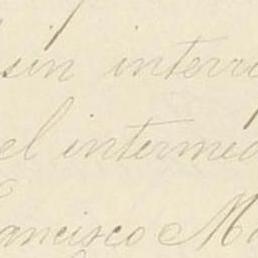 sin interr
el intermed
ancisco Ma